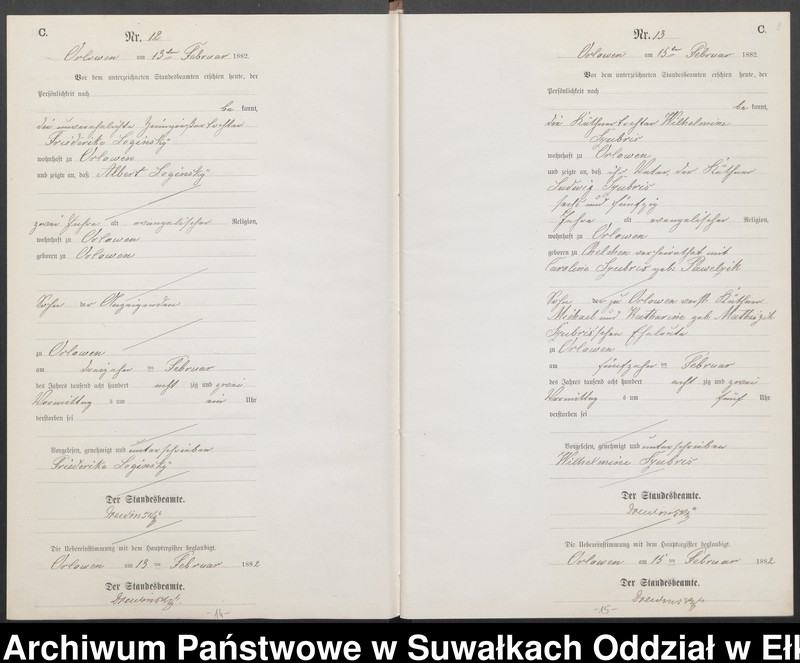 C.
Nr. 12
Orlowen am 13ten Februar 1882.
Vor dem unterzeichneten Standesbeamten erschien heute, der
Persönlichkeit nach
be kannt,
die unverehelichte
Friederike Loginsky
wohnhaft zu Orlowen
und zeigte an, daß Albert Loginsky
zwei Jahre alt evangelischer Religion,
wohnhaft zu Orlowen
geboren zu Orlowen
Sohn der Anzeigenden
zu Orlowen
am dreizehn ten Februar
des Jahres tausend acht hundert acht zig und zwei
Vormittag s um ein Uhr
verstorben sei
Vorgelesen, genehmigt und unterschrieben
Friederike Loginsky
Der Standesbeamte.
Die Uebereinstimmung mit dem Hauptregister beglaubigt.
Orlowen am 13 ten Februar 1882
Der Standesbeamte.
-14-
Nr. 13
C.
Orlowen am 15ten Februar 1882.
Vor dem unterzeichneten Standesbeamten erschien heute, der
Persönlichkeit nach
be kannt,
die Käthnertochter Wilhelmine
Czubris
wohnhaft zu Orlowen
und zeigte an, daß ihr Vater, der Käthner
Ludwig Czubris
sechs und fünfzig
Jahre alt evangelischer Religion,
wohnhaft zu Orlowen
geboren zu verheirathet mit
Caroline Czubris geb. Pawelzik
Sohn der zu Orlowen verst. Käthner
Michael und Katharine geb.
Czubris'schen Eheleute
zu Orlowen
am fünfzehn ten Februar
des Jahres tausend acht hundert acht zig und zwei
Vormittag s um fünf Uhr
verstorben sei
Vorgelesen, genehmigt und unterschrieben
Wilhelmine Czubris
Der Standesbeamte.
Die Uebereinstimmung mit dem Hauptregister beglaubigt.
Orlowen am 15 ten Februar 1882
Der Standesbeamte.
-15-
Archiwum Państwowe w Suwałkach Oddział w Eł